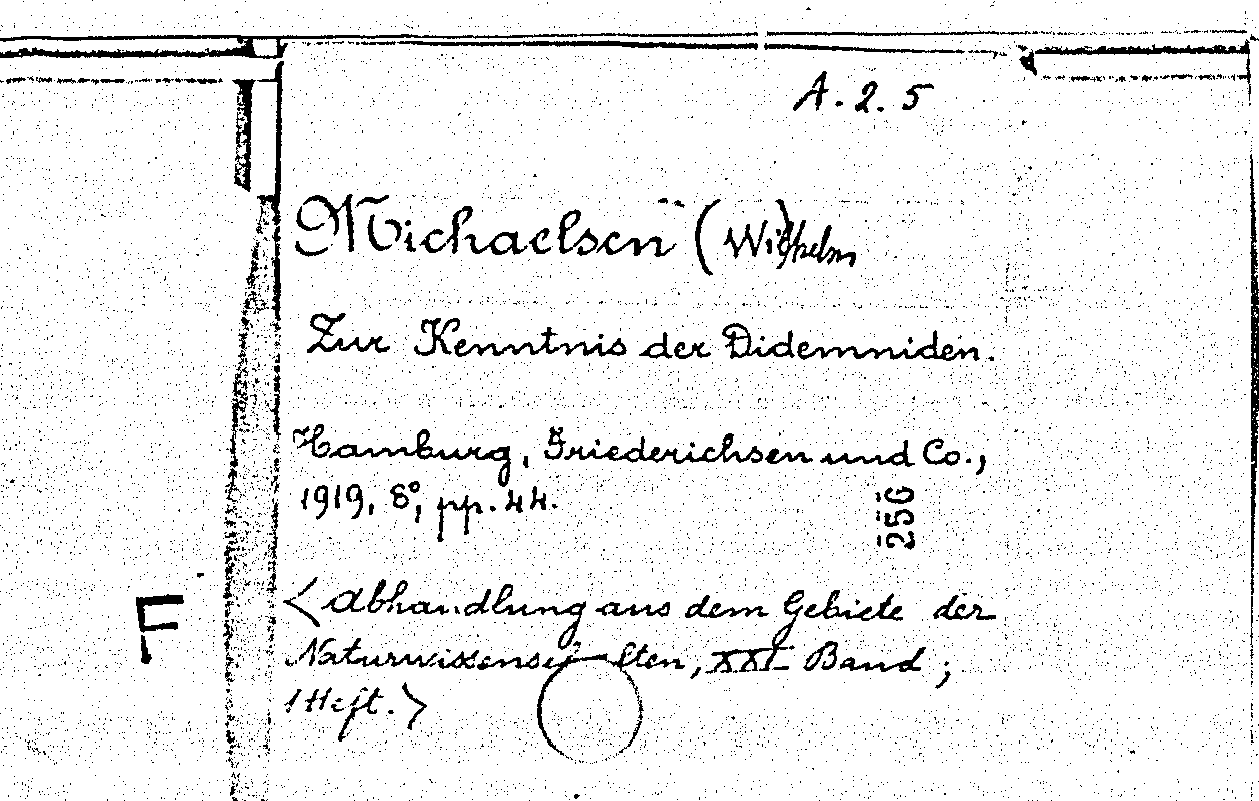 A. 2. 5
Michaelsen (Wilhelm)
Zur Kenntnis der Didemniden.
Hamburg, Friederichsen und Co.,
1919, 8°, pp. 44.
256
F
<Abhandlung aus dem Gebiete der
Naturwissenschaften, XXI Band;
1 Heft.>